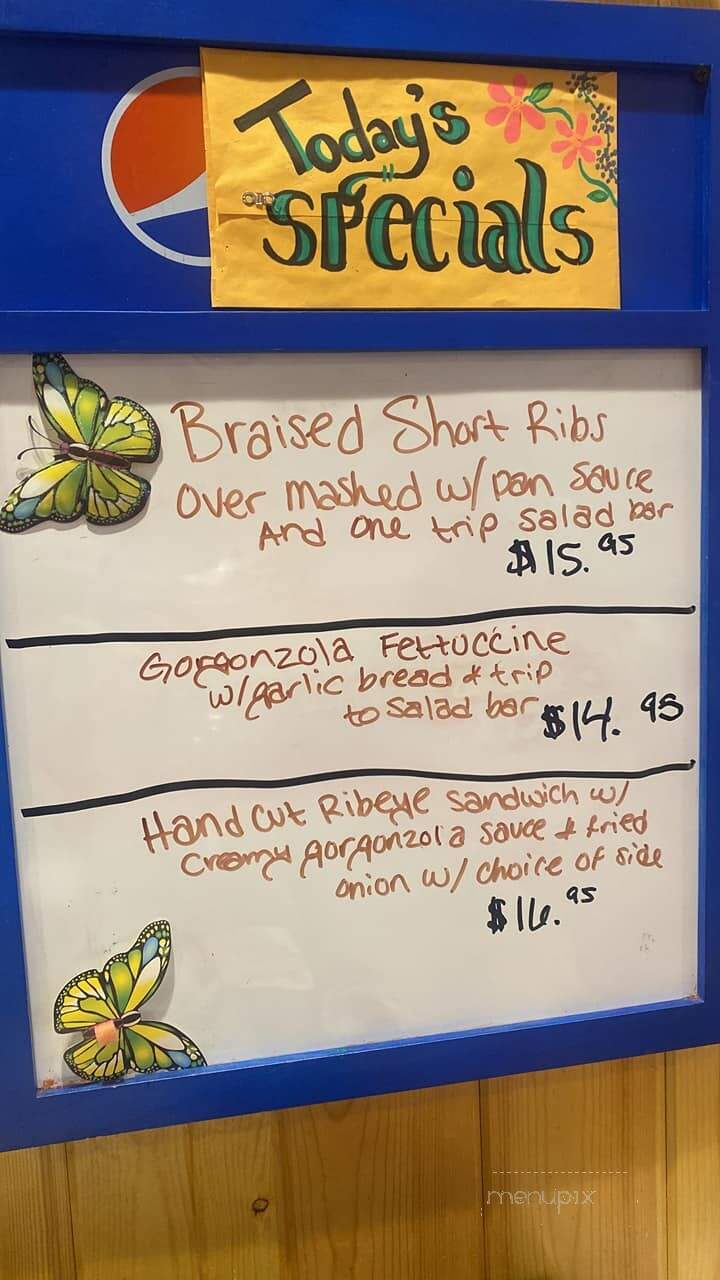 Today's
Specials
Braised Short Ribs
over mashed w/ pan sauce
And one trip salad bar
$15.95
Gorgonzola Fettuccine
w/garlic bread & trip
to salad bar
$14.95
Hand cut Ribeye sandwich w/
Creamy gorgonzola sauce & fried
onion w/ choice of side
$16.95
menupix